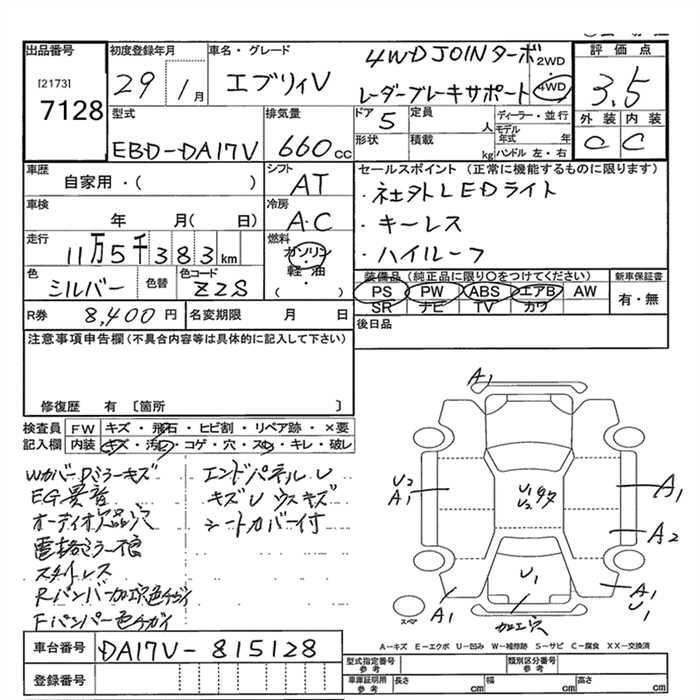 出品番号
[2173]
7128
初度登録年月
29 1月
車名・グレード
エブリィV
4WD JOINターボ
レーダーブレーキサポート
2WD
4WD
評価点
3.5
外装 内装
C C
型式
EBD-DA17V
排気量
660cc
ドア
5
定員
人
形状
積載
kg
ディーラー・並行
モデル年式 年
ハンドル 左・右
車歴
自家用・( )
シフト
AT
車検
年 月( 日)
冷房
A・C
走行
11万5千383km
燃料
ガソリン
・
軽油
( )
色
シルバー
色替
色コード
Z2S
R券
8,400円
名変期限 月 日
セールスポイント (正常に機能するものに限ります)
・社外LEDライト
・キーレス
・ハイルーフ
装備品 (純正品に限り○をつけてください)
新車保証書
PS PW ABS エアB AW
有・無
SR ナビ TV カワ
後日品
注意事項申告欄(不具合内容等は具体的に記入して下さい)
修復歴 有 [箇所 ]
検査員記入欄
FW キズ・飛石・ヒビ割・リペア跡・×要
内装 キズ・汚れ・コゲ・穴・スレ・キレ・破レ
WカバーDミラーキズ
EG異音
オーディオ欠品穴
電格ミラー不良
スタイレス
Rバンパー加工穴色チガイ
Fバンパー色チガイ
エンドパネルU
キズU ウスキズ
シートカバー付
A1
U2
A1
U1
U2
A1
A2
U1
A1
A1
スペア
加工穴
A-キズ E-エクボ U-凹み W-補修跡 S-サビ C-腐食 XX-交換済
車台番号
DA17V-815128
登録番号
型式指定番号
参考
類別区分番号
参考
車庫証明用
参考
長さ cm 幅 cm 高さ cm